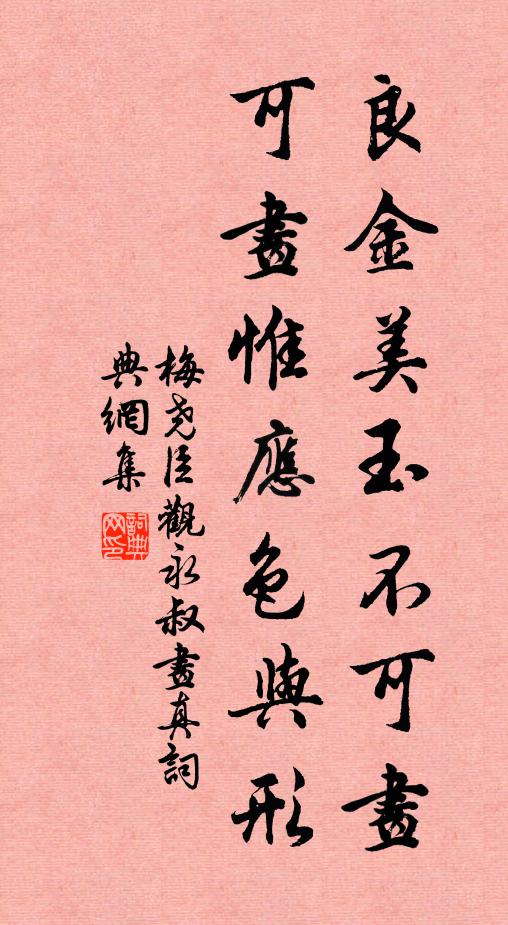 良金美玉不可畫
可畫惟應色與形
梅堯臣觀永叔畫真詞
典網集
詞典
網印